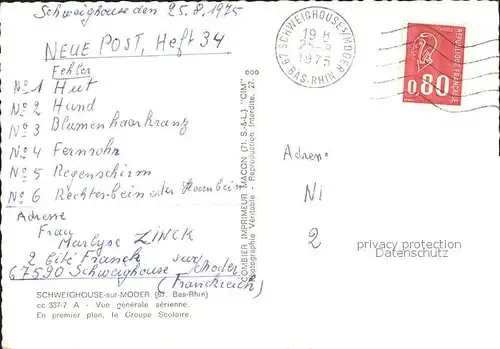 Schweighouse den 25.8.1975
NEUE POST, Heft 34
Fehler
No 1 Hut
No 2 Hund
No 3 Blumenhaarkranz
No 4 Fernrohr
No 5 Regenschirm
No 6 Rechterbein oder
Adresse
Frau
Marlyse ZINCK
2 Cité Franck sur/Moder
67590 Schweighouse
(Frankreich)
SCHWEIGHOUSE-sur-MODER (67. Bas-Rhin)
cc 337-7 A - Vue générale aérienne.
En premier plan, le Groupe Scolaire.
COMBIER IMPRIMEUR MACON (71. S.-&-L.) "CIM"
Photographie Véritable - Reproduction Interdite. 27.
67 SCHWEIGHOUSE S/MODER
19 H
25-8
1975
BAS-RHIN
REPUBLIQUE FRANÇAISE
0,80
NI
2
privacy protection
Datenschutz